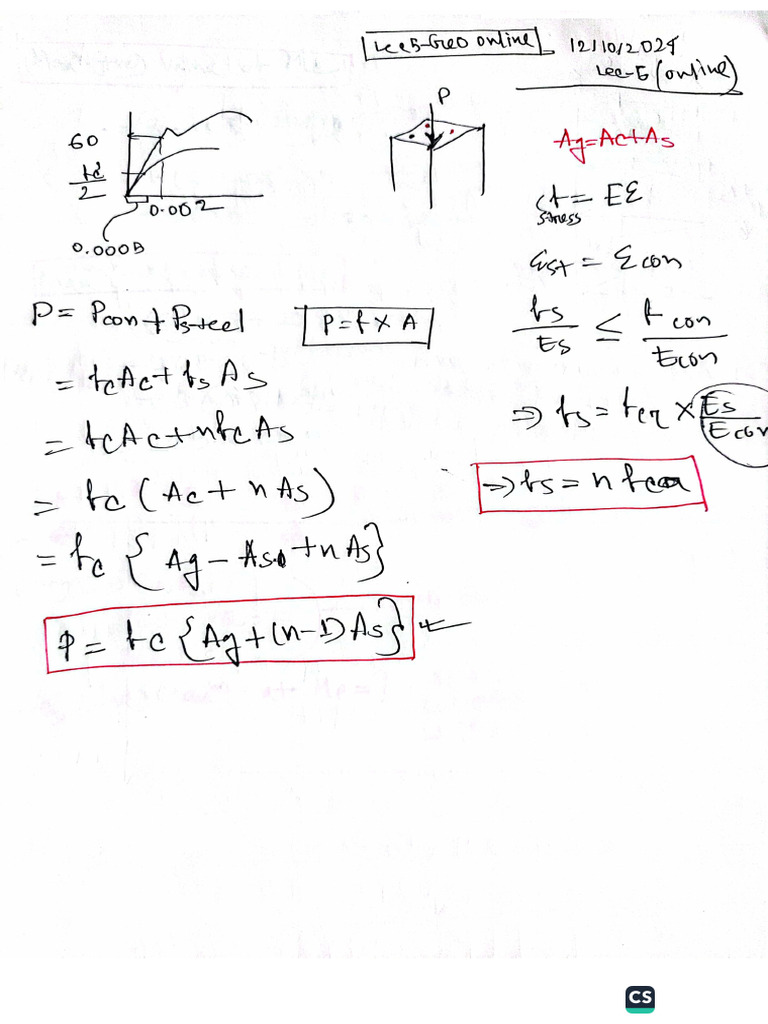 Lec5-Geo online 12/10/2024
Lec-5 (online)
P
60
fc'/2
0.002
0.0005
Ag=Ac+As
f = Eε
stress
εst = εcon
fs/Es ≤ fcon/Econ
⇒ fs = fcn × Es/Econ
⇒ fs = n fcon
P = Pcon + Psteel
P = f × A
= fcAc + fs As
= fcAc + nfcAs
= fc (Ac + nAs)
= fc {Ag - As + nAs}
P = fc {Ag + (n-1) As} ←
CS